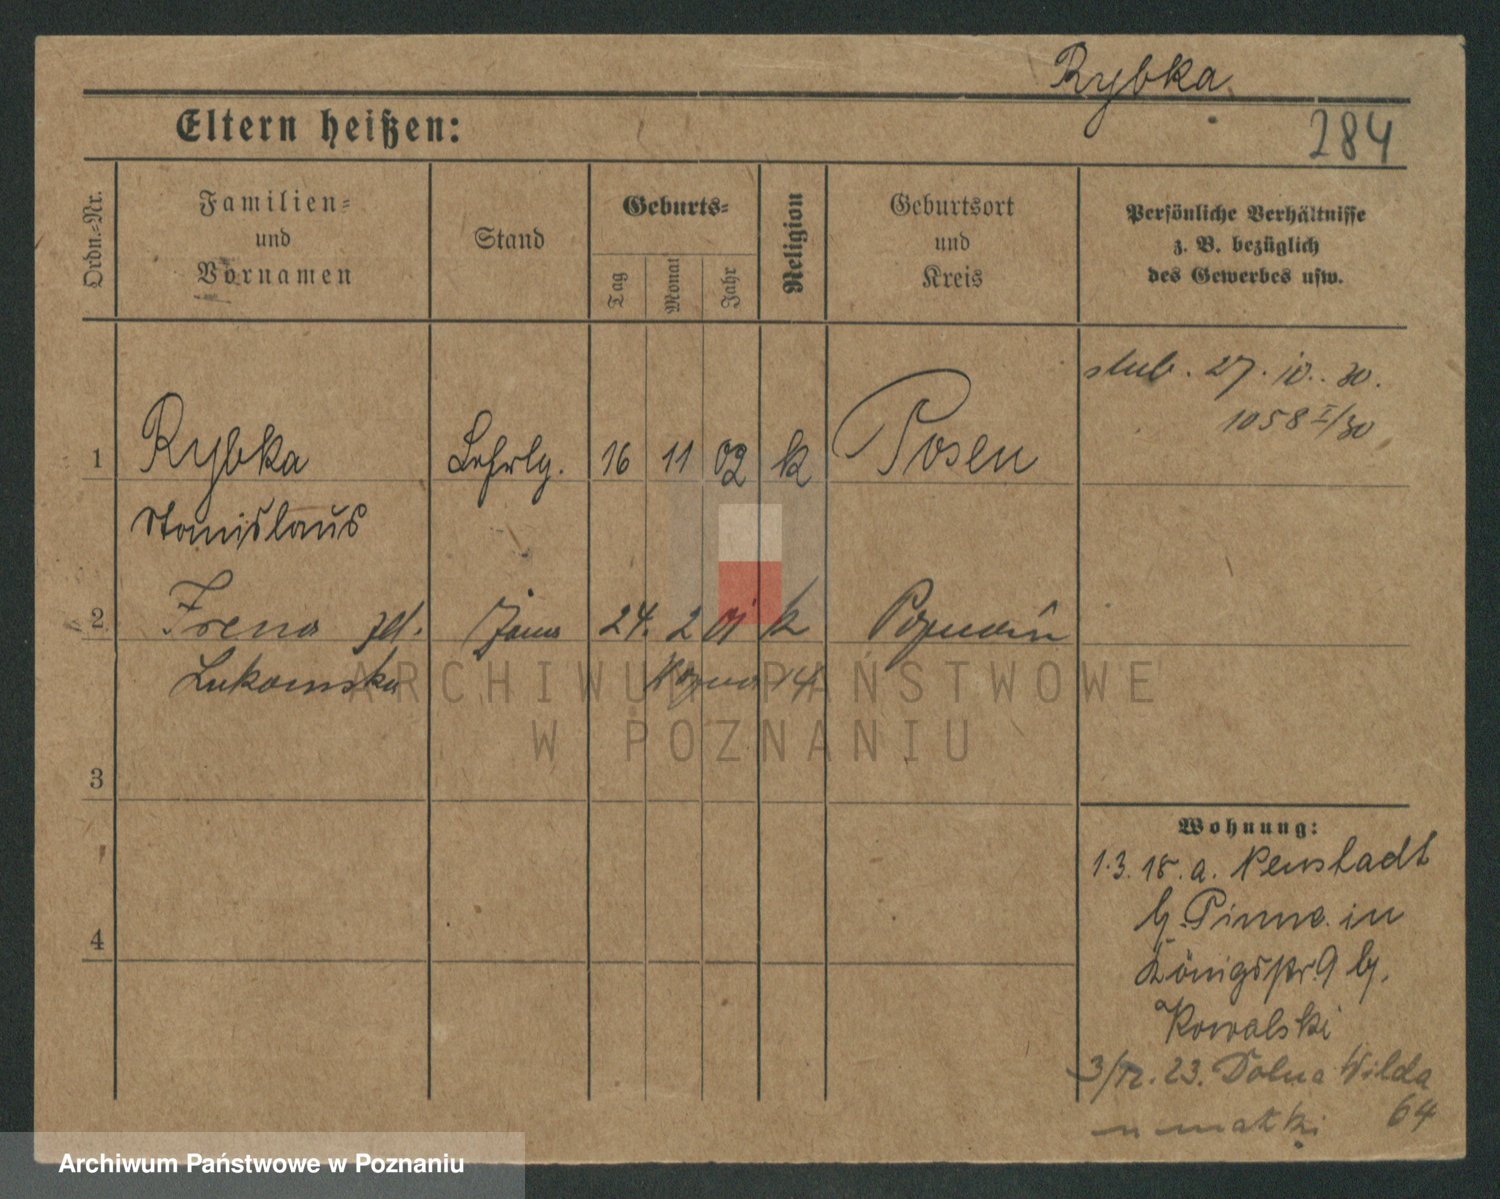 Rybka
284
Eltern heißen:
Ordn.-Nr.
Familien- und Vornamen
Stand
Geburts-
Tag
Monat
Jahr
Religion
Geburtsort und Kreis
Persönliche Verhältnisse
z. B. bezüglich
des Gewerbes usw.
ślub. 27. 10. 30.
1058 I/30
1 Rybka Lehrlg. 16 11 02 k Posen
Stanislaus
2 Irena żona 24. 2 01 k Poznań
Łukomska
3
4
Wohnung:
1.3.18. a. Neustadt
b. Pinne in
Königstr. 9 b.
Kowalski
23. Dolna Wilda
64
u matki
ARCHIWUM PAŃSTWOWE
W POZNANIU
Archiwum Państwowe w Poznaniu